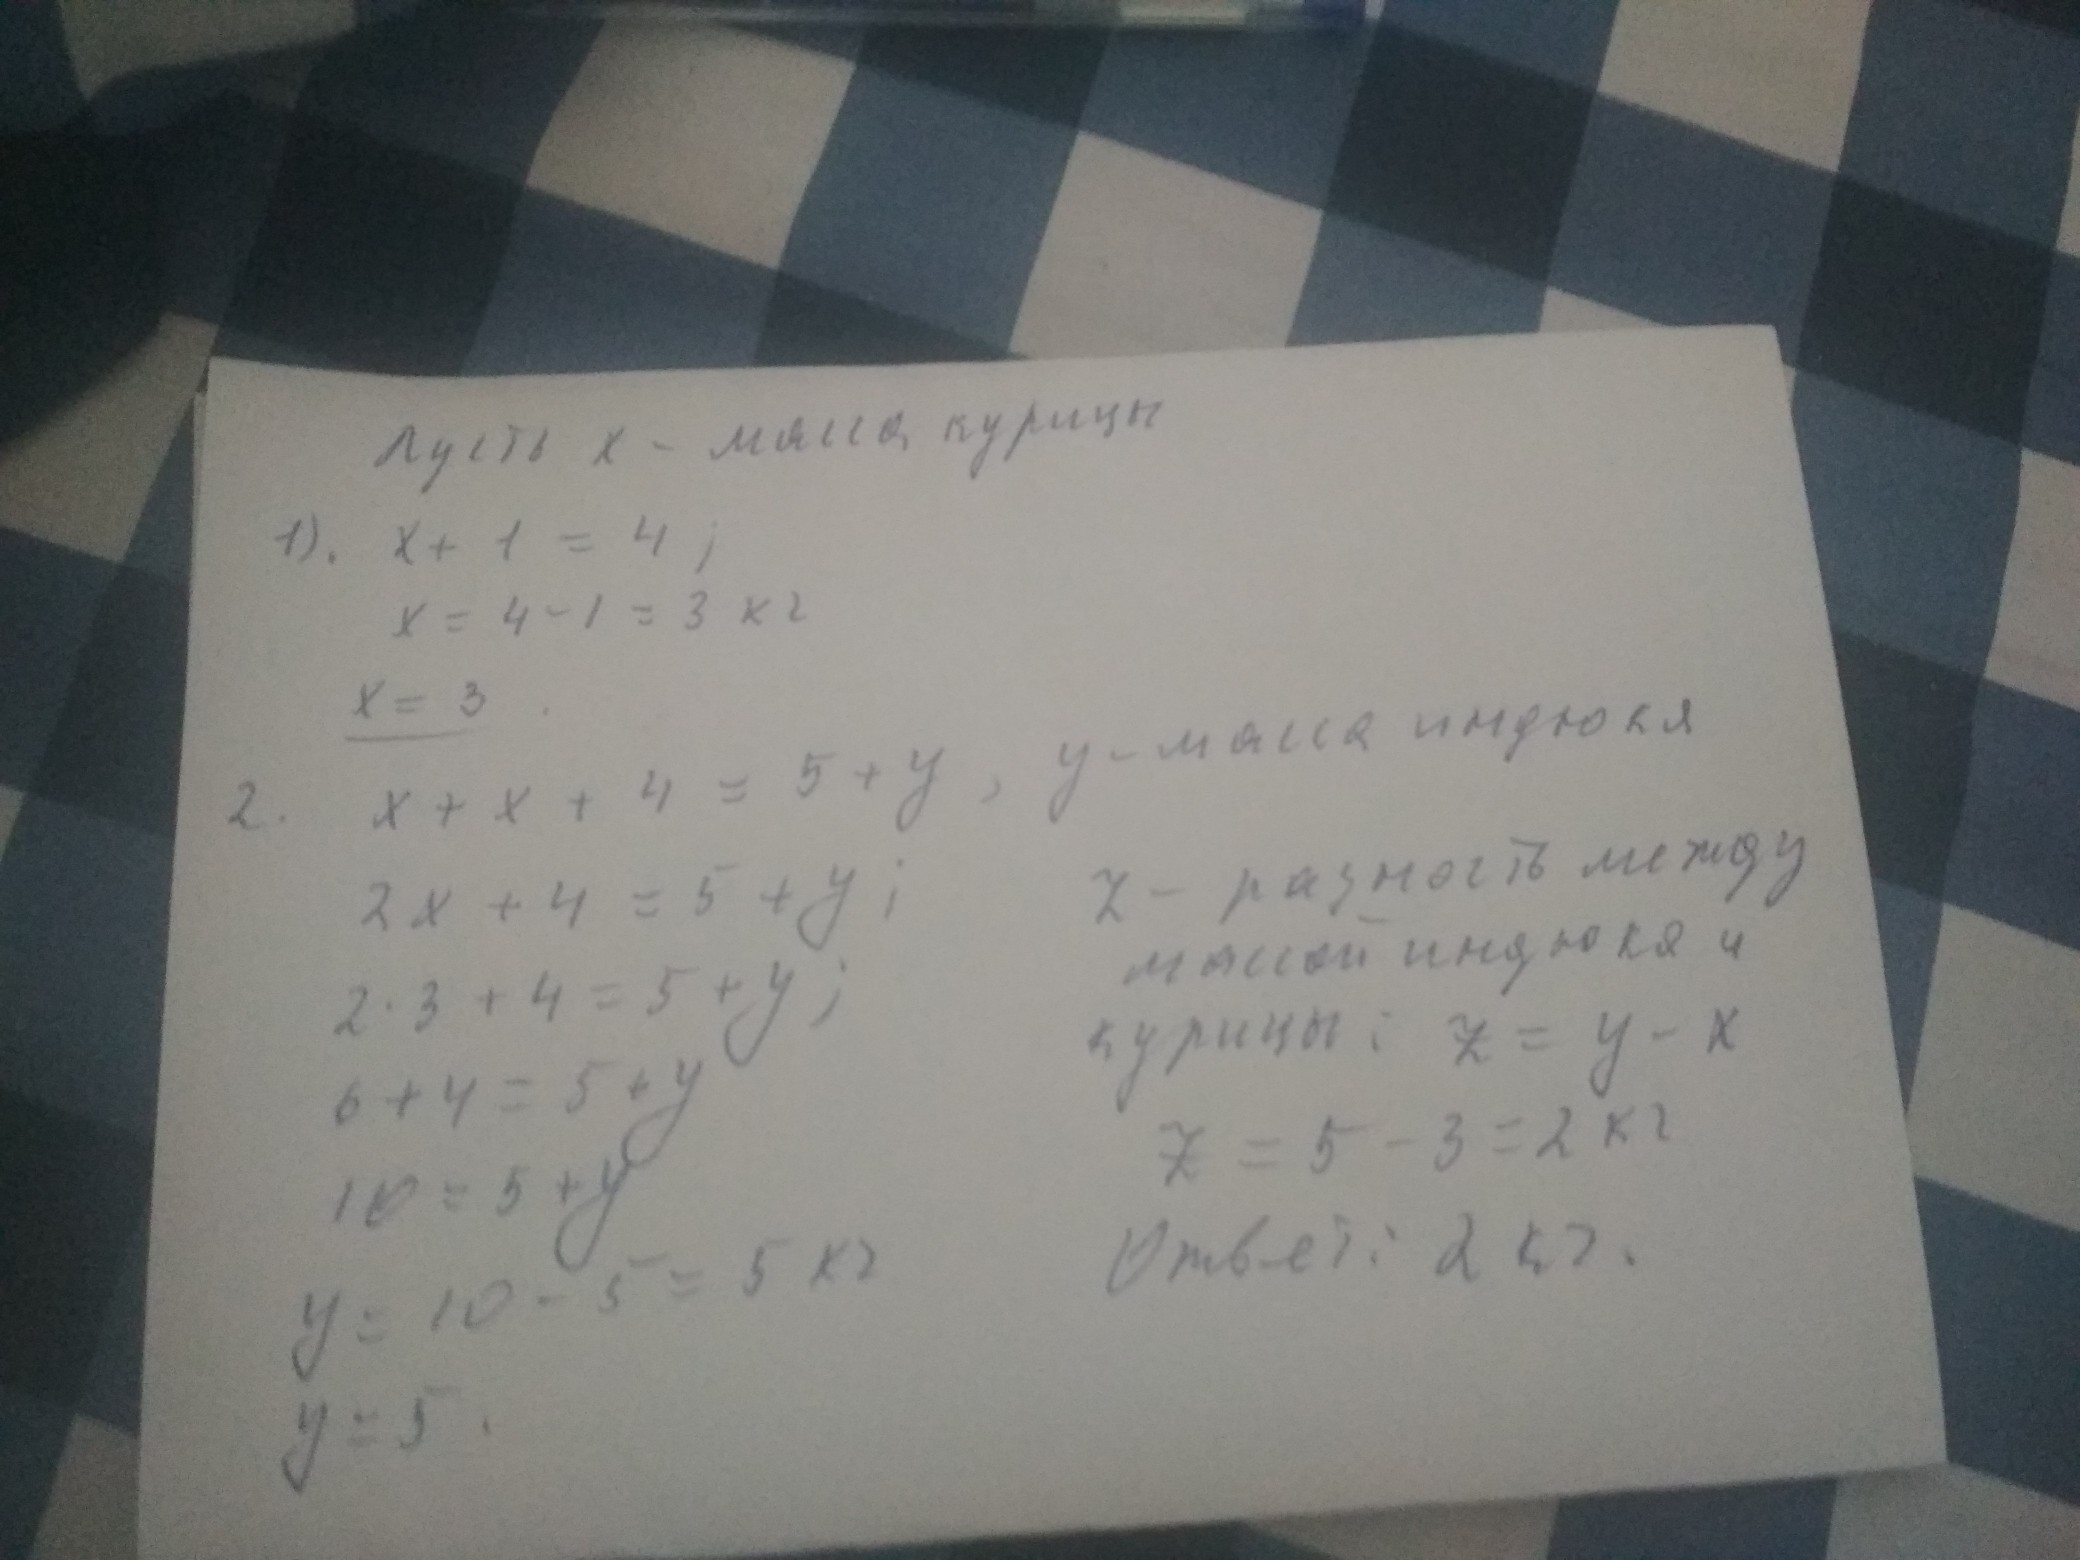 Пусть x - масса курицы
1). x + 1 = 4;
x = 4 - 1 = 3 кг
x = 3.
2. x + x + 4 = 5 + y, y - масса индюка
2x + 4 = 5 + y;
2·3 + 4 = 5 + y;
6 + 4 = 5 + y
10 = 5 + y
y = 10 - 5 = 5 кг
y = 5.
z - разность между
массой индюка и
курицы: z = y - x
z = 5 - 3 = 2 кг
Ответ: 2 кг.